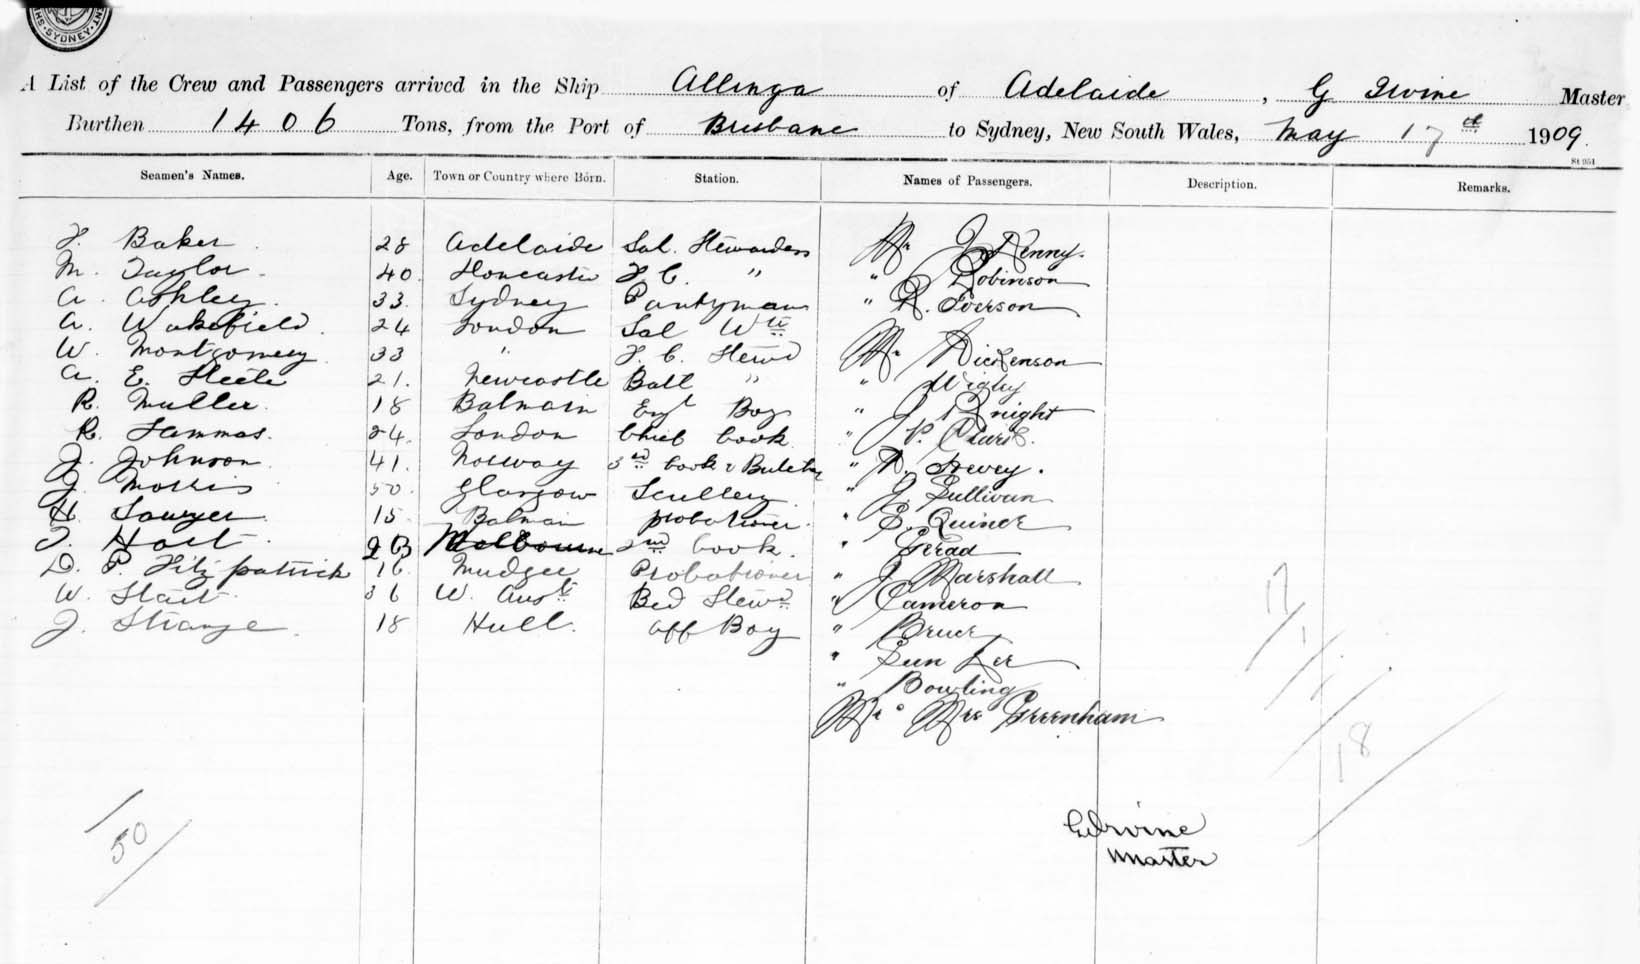 SYDNEY
A List of the Crew and Passengers arrived in the Ship Allinga of Adelaide, G Irvine Master
Burthen 1406 Tons, from the Port of Brisbane to Sydney, New South Wales, May 17th 1909.
St 951
Seamen's Names. Age. Town or Country where Born. Station. Names of Passengers. Description. Remarks.
F. Baker 28 Adelaide Sal. Stewardess Mr J Kenny.
M. Taylor 40 F. C. " " Robinson
A. Ashley 33 Sydney Pantryman " R. Iverson
A. Wakefield 24 London Sal Wtr
W. Montgomery 33 " F. C. Stewd Mr Dickenson
A. E. Steele 21. Newcastle Batt " " Wigley
R. Muller 18 Balmain Engr Boy " J Knight
R. Lammas. 24. London Chief Cook " P. Clark.
J. Johnson 41. Norway 3rd Cook & Butcher "
J. Morris 50 Glasgow Scullery " J. Sullivan
H. Sawyer 15 Balmain Probationer. "
T. Hart. 23 Melbourne 2nd Cook. " Gerad
D. P. Fitzpatrick 16 Mudgee Probationer " J Marshall
W. Start 36 W. Aust. Bed Stewd " Cameron
J. Strange 18 Hull. Off Boy " Bruce
" Sun Lee
" Bowling
Mr & Mrs Greenham
17/1/18
50
G Irvine
Master